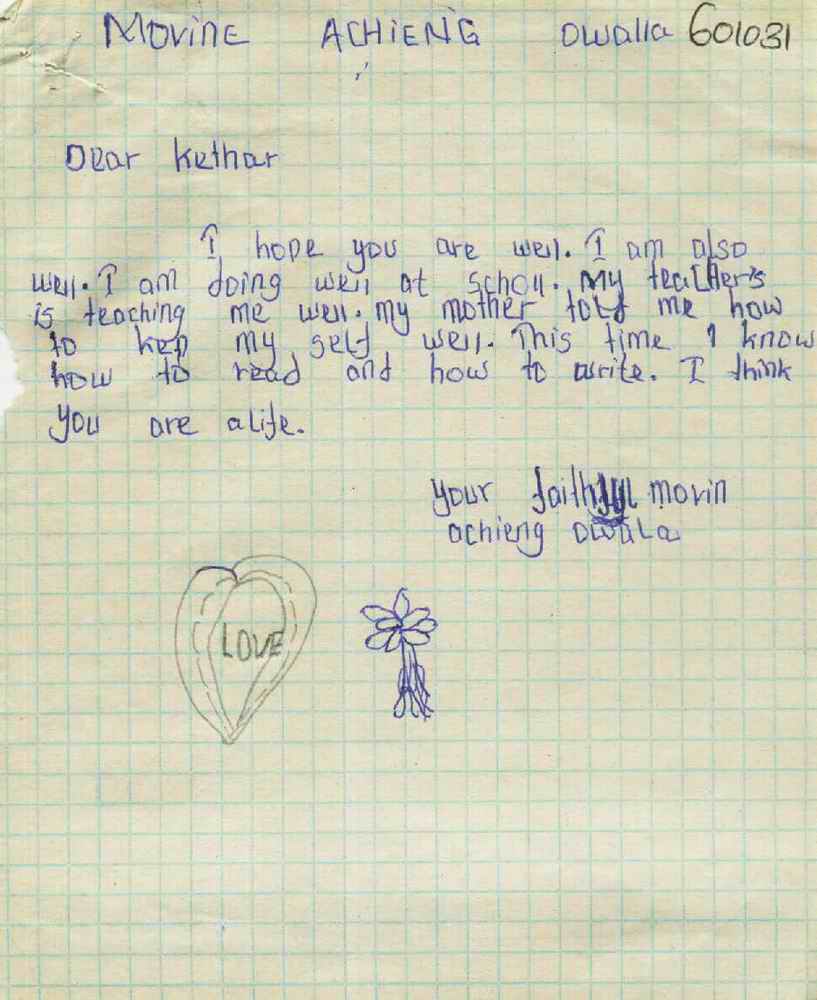 MOViNE ACHiENG OWalla 601031
Dear Kethar
I hope you are well. I am also
well. I am doing well at scholl. My teacHer's
is teaching me well. my mother told me how
to kep my self well. This time I know
how to read and how to write. I think
you are alife.
your faithful movin
achieng owala
LOVE